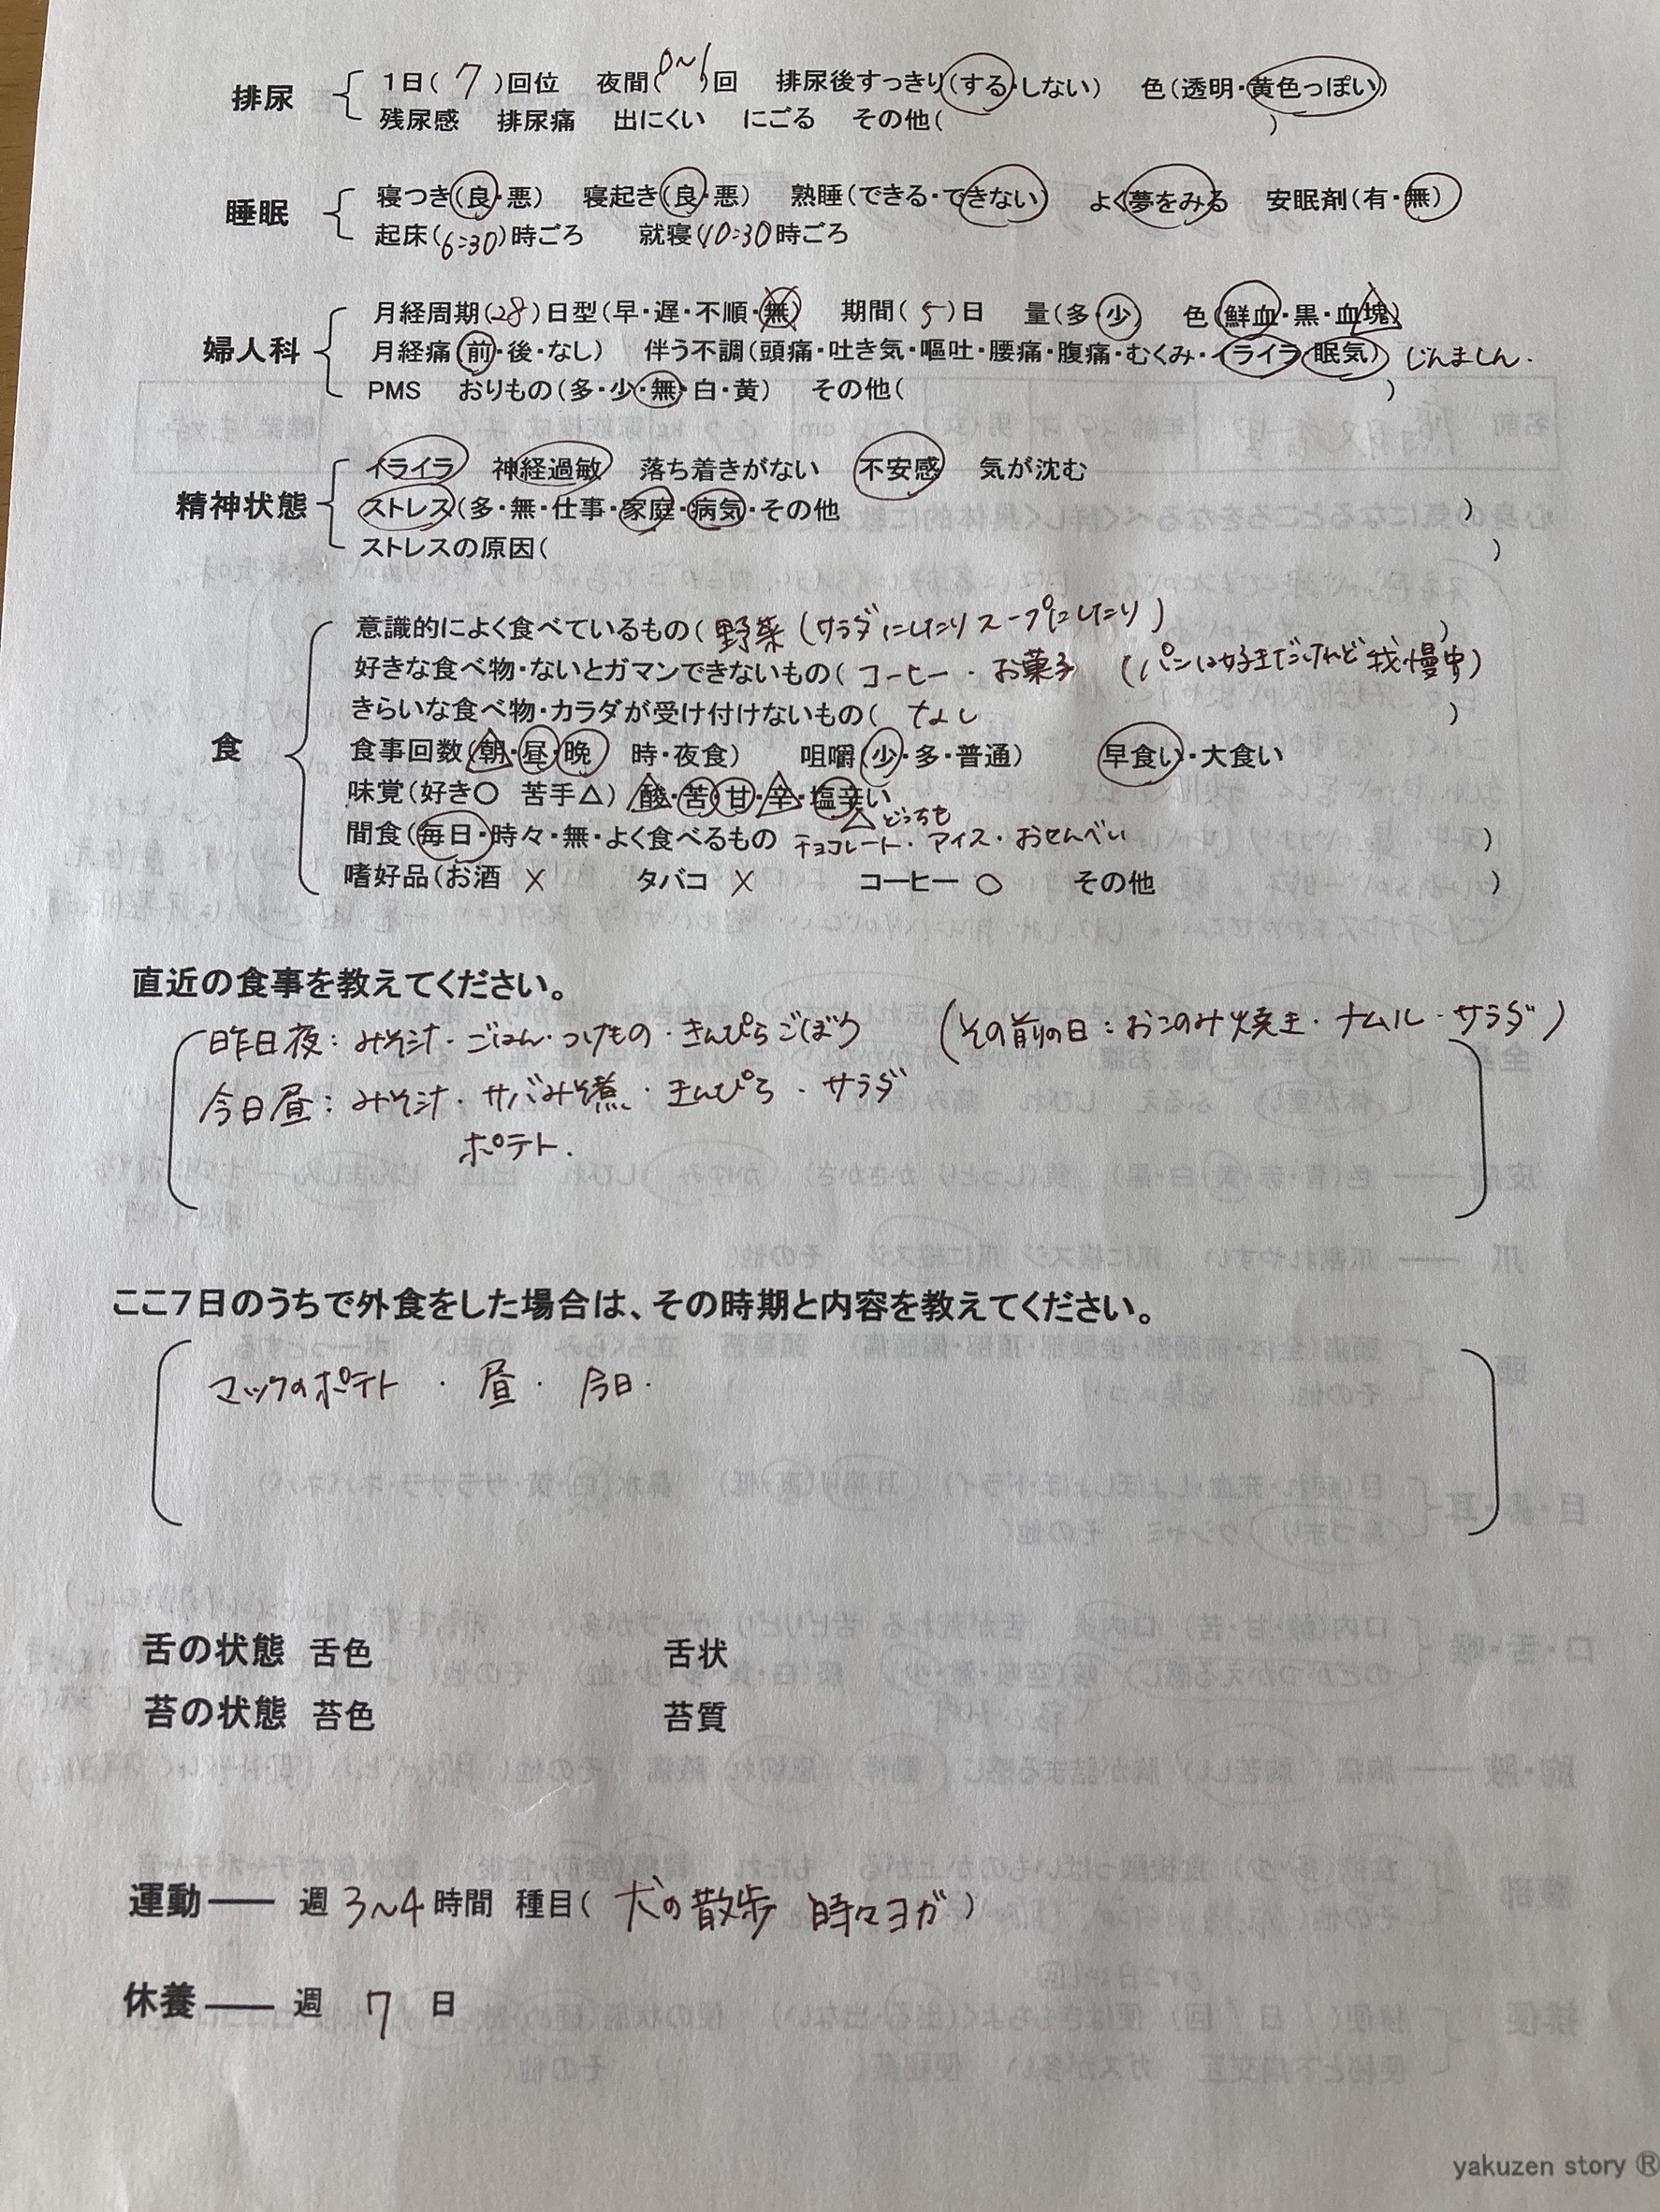 排尿 1日( 7 )回位 夜間(0~1)回 排尿後すっきり(する・しない) 色(透明・黄色っぽい)
残尿感 排尿痛 出にくい にごる その他( )
睡眠 寝つき(良・悪) 寝起き(良・悪) 熟睡(できる・できない) よく夢をみる 安眠剤(有・無)
起床(6:30)時ごろ 就寝(10:30)時ごろ
婦人科 月経周期(28)日型(早・遅・不順・無) 期間( 5 )日 量(多・少) 色(鮮血・黒・血塊)
月経痛(前・後・なし) 伴う不調(頭痛・吐き気・嘔吐・腰痛・腹痛・むくみ・イライラ・眠気) じんましん.
PMS おりもの(多・少・無・白・黄) その他( )
精神状態 イライラ 神経過敏 落ち着きがない 不安感 気が沈む
ストレス(多・無・仕事・家庭・病気・その他 )
ストレスの原因( )
食 意識的によく食べているもの( 野菜 (サラダにしたりスープにしたり) )
好きな食べ物・ないとガマンできないもの( コーヒー・お菓子 (パンは好きだけれど我慢中)
きらいな食べ物・カラダが受け付けないもの( なし )
食事回数(朝・昼・晩 時・夜食) 咀嚼(少・多・普通) 早食い・大食い
味覚(好き○ 苦手△) 酸・苦・甘・辛・塩辛い
△どっちも
間食(毎日・時々・無・よく食べるもの チョコレート・アイス・おせんべい )
嗜好品(お酒 × タバコ × コーヒー ○ その他 )
直近の食事を教えてください。
昨日夜:みそ汁・ごはん・つけもの・きんぴらごぼう (その前の日:おこのみ焼き・ナムル・サラダ)
今日昼:みそ汁・サバみそ煮・きんぴら・サラダ
ポテト.
ここ7日のうちで外食をした場合は、その時期と内容を教えてください。
マックのポテト ・ 昼 ・ 今日.
舌の状態 舌色 舌状
苔の状態 苔色 苔質
運動―― 週 3~4 時間 種目( 犬の散歩 時々ヨガ )
休養―― 週 7 日
yakuzen story ®